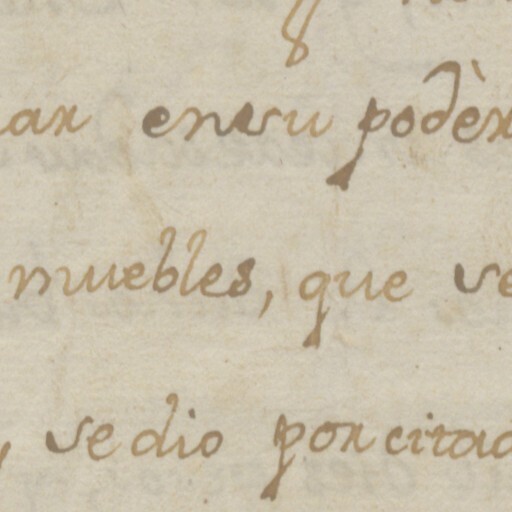 ar en su podèr
muebles, que se
, se dio por citad